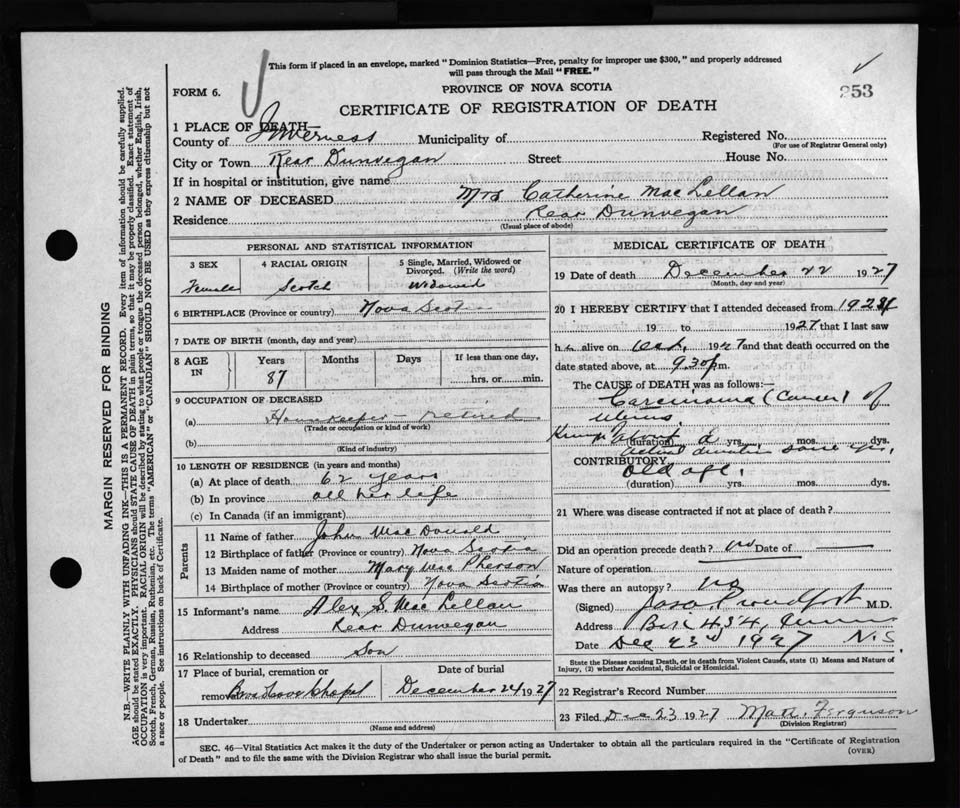 This form if placed in an envelope, marked "Dominion Statistics—Free, penalty for improper use $300," and properly addressed
will pass through the Mail "FREE."
253
FORM 6.
PROVINCE OF NOVA SCOTIA
CERTIFICATE OF REGISTRATION OF DEATH
1 PLACE OF DEATH—
County of Inverness Municipality of Registered No.
(For use of Registrar General only)
City or Town Rear Dunvegan Street House No.
If in hospital or institution, give name
2 NAME OF DECEASED Mrs Catherine MacLellan
Residence Rear Dunvegan
(Usual place of abode)
PERSONAL AND STATISTICAL INFORMATION
3 SEX 4 RACIAL ORIGIN 5 Single, Married, Widowed or
Divorced. (Write the word)
Female Scotch Widowed
6 BIRTHPLACE (Province or country) Nova Scotia
7 DATE OF BIRTH (month, day and year)
8 AGE IN Years Months Days If less than one day,
87 hrs. or min.
9 OCCUPATION OF DECEASED
(a) Housekeeper – retired
(Trade or occupation or kind of work)
(b)
(Kind of industry)
10 LENGTH OF RESIDENCE (in years and months)
(a) At place of death 62 years
(b) In province all her life
(c) In Canada (if an immigrant)
Parents
11 Name of father John MacDonald
12 Birthplace of father (Province or country) Nova Scotia
13 Maiden name of mother Mary MacPherson
14 Birthplace of mother (Province or country) Nova Scotia
15 Informant's name Alex S. MacLellan
Address Rear Dunvegan
16 Relationship to deceased Son
17 Place of burial, cremation or Date of burial
removal Chapel December 24 1927
18 Undertaker
(Name and address)
MEDICAL CERTIFICATE OF DEATH
19 Date of death December 22 1927
(Month, day and year)
20 I HEREBY CERTIFY that I attended deceased from 192
19 to 1927 that I last saw
h alive on Oct. 1927 and that death occurred on the
date stated above, at 9.30 p m.
The CAUSE of DEATH was as follows:—
Carcinoma (Cancer) of
uterus
(duration) yrs. mos. dys.
actual duration some yrs.
CONTRIBUTORY Old age.
(duration) yrs. mos. dys.
21 Where was disease contracted if not at place of death?
Did an operation precede death? no Date of
Nature of operation
Was there an autopsy? no
(Signed) Jas. Proudfoot M.D.
Address Box 434, N.S.
Date Dec 23rd 1927
State the Disease causing Death, or in death from Violent Causes, state (1) Means and Nature of
Injury, (2) whether Accidental, Suicidal or Homicidal.
22 Registrar's Record Number
23 Filed Dec 23 1927 Ferguson
(Division Registrar)
SEC. 46—Vital Statistics Act makes it the duty of the Undertaker or person acting as Undertaker to obtain all the particulars required in the "Certificate of Registration
of Death" and to file the same with the Division Registrar who shall issue the burial permit.
(OVER)
MARGIN RESERVED FOR BINDING
N.B.—WRITE PLAINLY WITH UNFADING INK—THIS IS A PERMANENT RECORD. Every item of information should be carefully supplied.
AGE should be stated EXACTLY. PHYSICIANS should STATE CAUSE OF DEATH in plain terms, so that it may be properly classified. Exact statement of
OCCUPATION is very important. RACIAL ORIGIN will be described by stating to what people or tongue the deceased person belonged, whether English, Irish,
Scotch, French, German, Russian, Ruthenian, etc. The terms "AMERICAN" or "CANADIAN" SHOULD NOT BE USED as they express citizenship but not
a race or people. See instructions on back of Certificate.